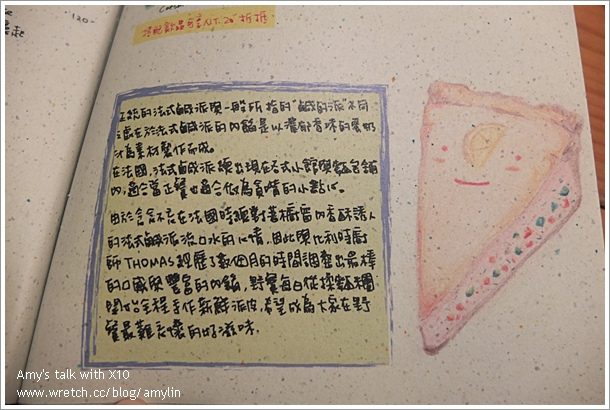 120-
搭配飲品可享NT.20折抵
正統的法式鹹派與一般所指的"鹹的派"不同
之處在於法式鹹派的內餡是以濃郁香味的蛋奶
汁為素材製作而成。
在法國，法式鹹派總出現在各式小館與麵包舖
內，適合當正餐也適合做為貪嘴的小點心。
由於念念不忘在法國時總對著櫥窗內香酥誘人
的法式鹹派流口水的心情，因此與比利時廚
師THOMAS經歷了數個月的時間調整出最棒
的口感與豐富的內餡，野餐每日從揉麵糰
開始全程手作新鮮派皮，希望成為大家在野
餐最難忘懷的好滋味.
Amy's talk with X10
www.wretch.cc/blog/amylin